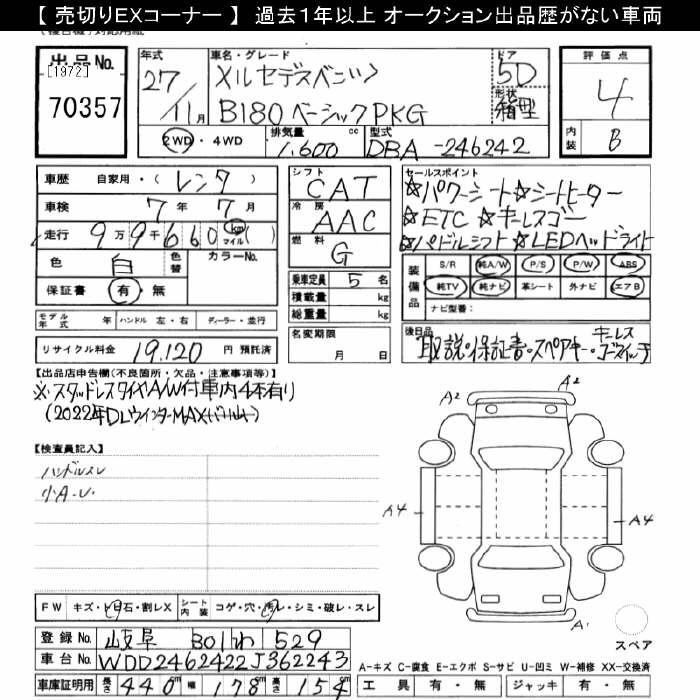 【 売切りEXコーナー 】 過去1年以上 オークション出品歴がない車両
出品No.
[1972]
70357
年式
27/11月
車名・グレード
メルセデスベンツ
B180 ベーシックPKG
ドア
5D
形状
箱型
評価点
4
内装
B
2WD ・ 4WD
排気量
1,600 cc
型式
DBA-246242
車歴 自家用・( レンタ )
車検 7年 7月
走行 9万9千660 km マイル ( )
色 白 色替 カラーNo.
保証書 有・無
シフト
CAT
冷房
AAC
燃料
G
乗車定員 5 名
積載量 kg
総重量 kg
セールスポイント
☆パワーシート☆シートヒーター
☆ETC ☆キーレスゴー
☆パドルシフト☆LEDヘッドライト
装備品
S/R 純A/W P/S P/W ABS
純TV 純ナビ 革シート 外ナビ エアB
ナビ型番:
モデル年式 年 ハンドル 左・右 ディーラー・並行
リサイクル料金 19,120 円 預託済
名変期限
月 日
後日品
取説・保証書・スペアキー・キーレスゴースイッチ
【出品店申告欄(不良箇所・欠品・注意事項等)】
※スタッドレスタイヤA/W付車内4本有り
(2022年DLウインターMAX
【検査員記入】
ハンドルスレ
小A・U
A2 A2
A4 A4
A1
スペア
FW キズ・ヒ・飛石・割レX シート内装 コゲ・穴・汚レ・シミ・破レ・スレ
登録No. 岐阜 301 わ 529
車台No. WDD2462422J362243
車庫証明用 長さ 440cm 幅 178cm 高さ 154
A-キズ C-腐食 E-エクボ S-サビ U-凹ミ W-補修 XX-交換済
工具 有・無 ジャッキ 有・無